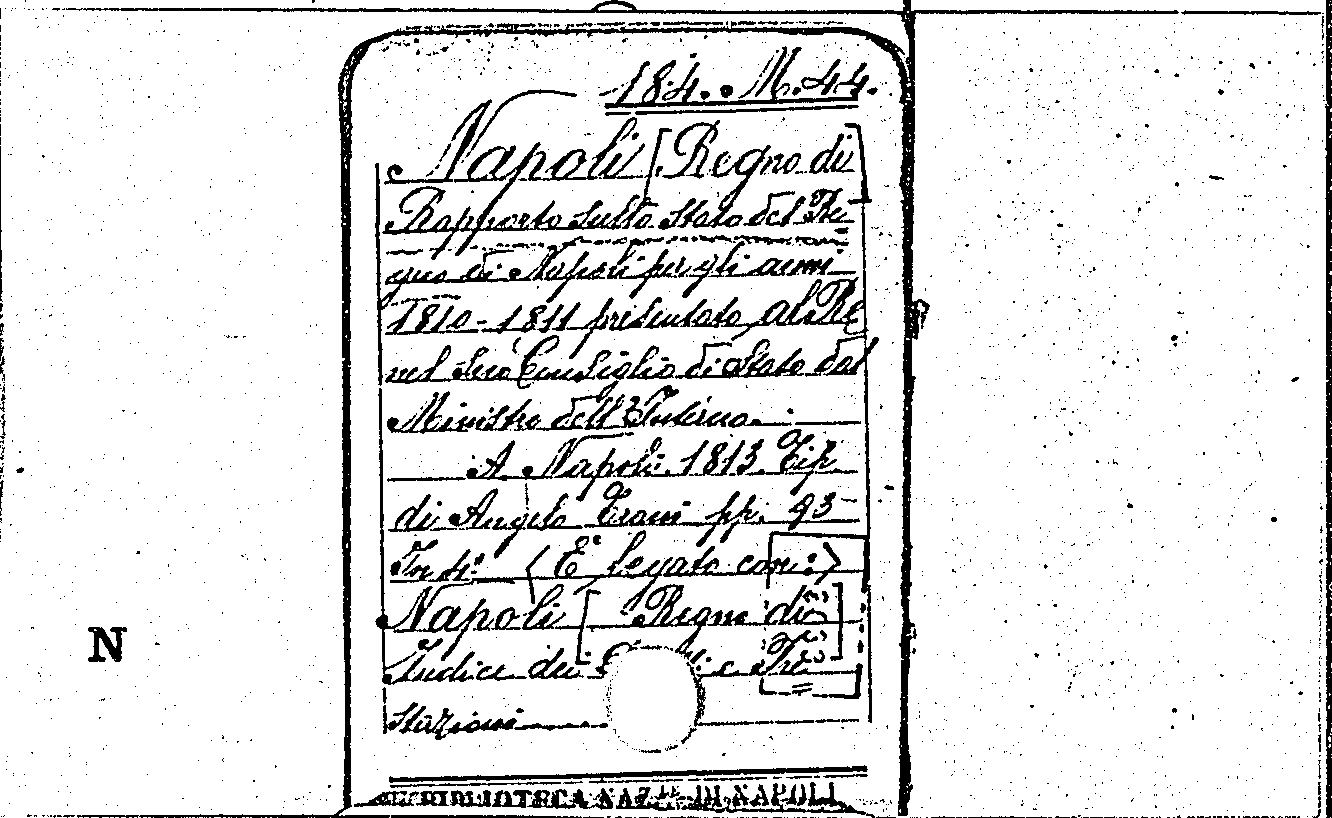 184. M. 44.
Napoli [Regno di]
Rapporto sullo stato del Re-
gno di Napoli per gli anni
1810-1811 presentato al Re
nel suo Consiglio di Stato dal
Ministro dell'Interno.
A Napoli. 1813. Tip.
di Angelo Trani pp. 93-
In 4º. (E' legato con:)
Napoli [Regno di]
N
Indice dei e Tre
stazioni
BIBLIOTECA NAZ.LE DI NAPOLI